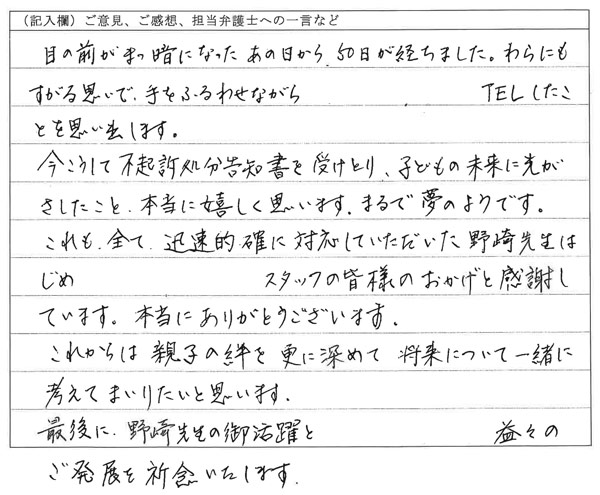 （記入欄）ご意見、ご感想、担当弁護士への一言など
目の前がまっ暗になった あの日から、50日が経ちました。わらにも
すがる思いで、手をふるわせながら TELしたこ
とを思い出します。
今こうして 不起訴処分告知書を受けとり、子どもの未来に光が
さしたこと、本当に嬉しく思います。まるで夢のようです。
これも、全て、迅速的確に対応していただいた野崎先生は
じめ スタッフの皆様のおかげと感謝し
ています。本当にありがとうございます。
これからは 親子の絆を 更に深めて 将来について一緒に
考えてまいりたいと思います。
最後に、野崎先生の御活躍と 益々の
ご発展を祈念いたします。